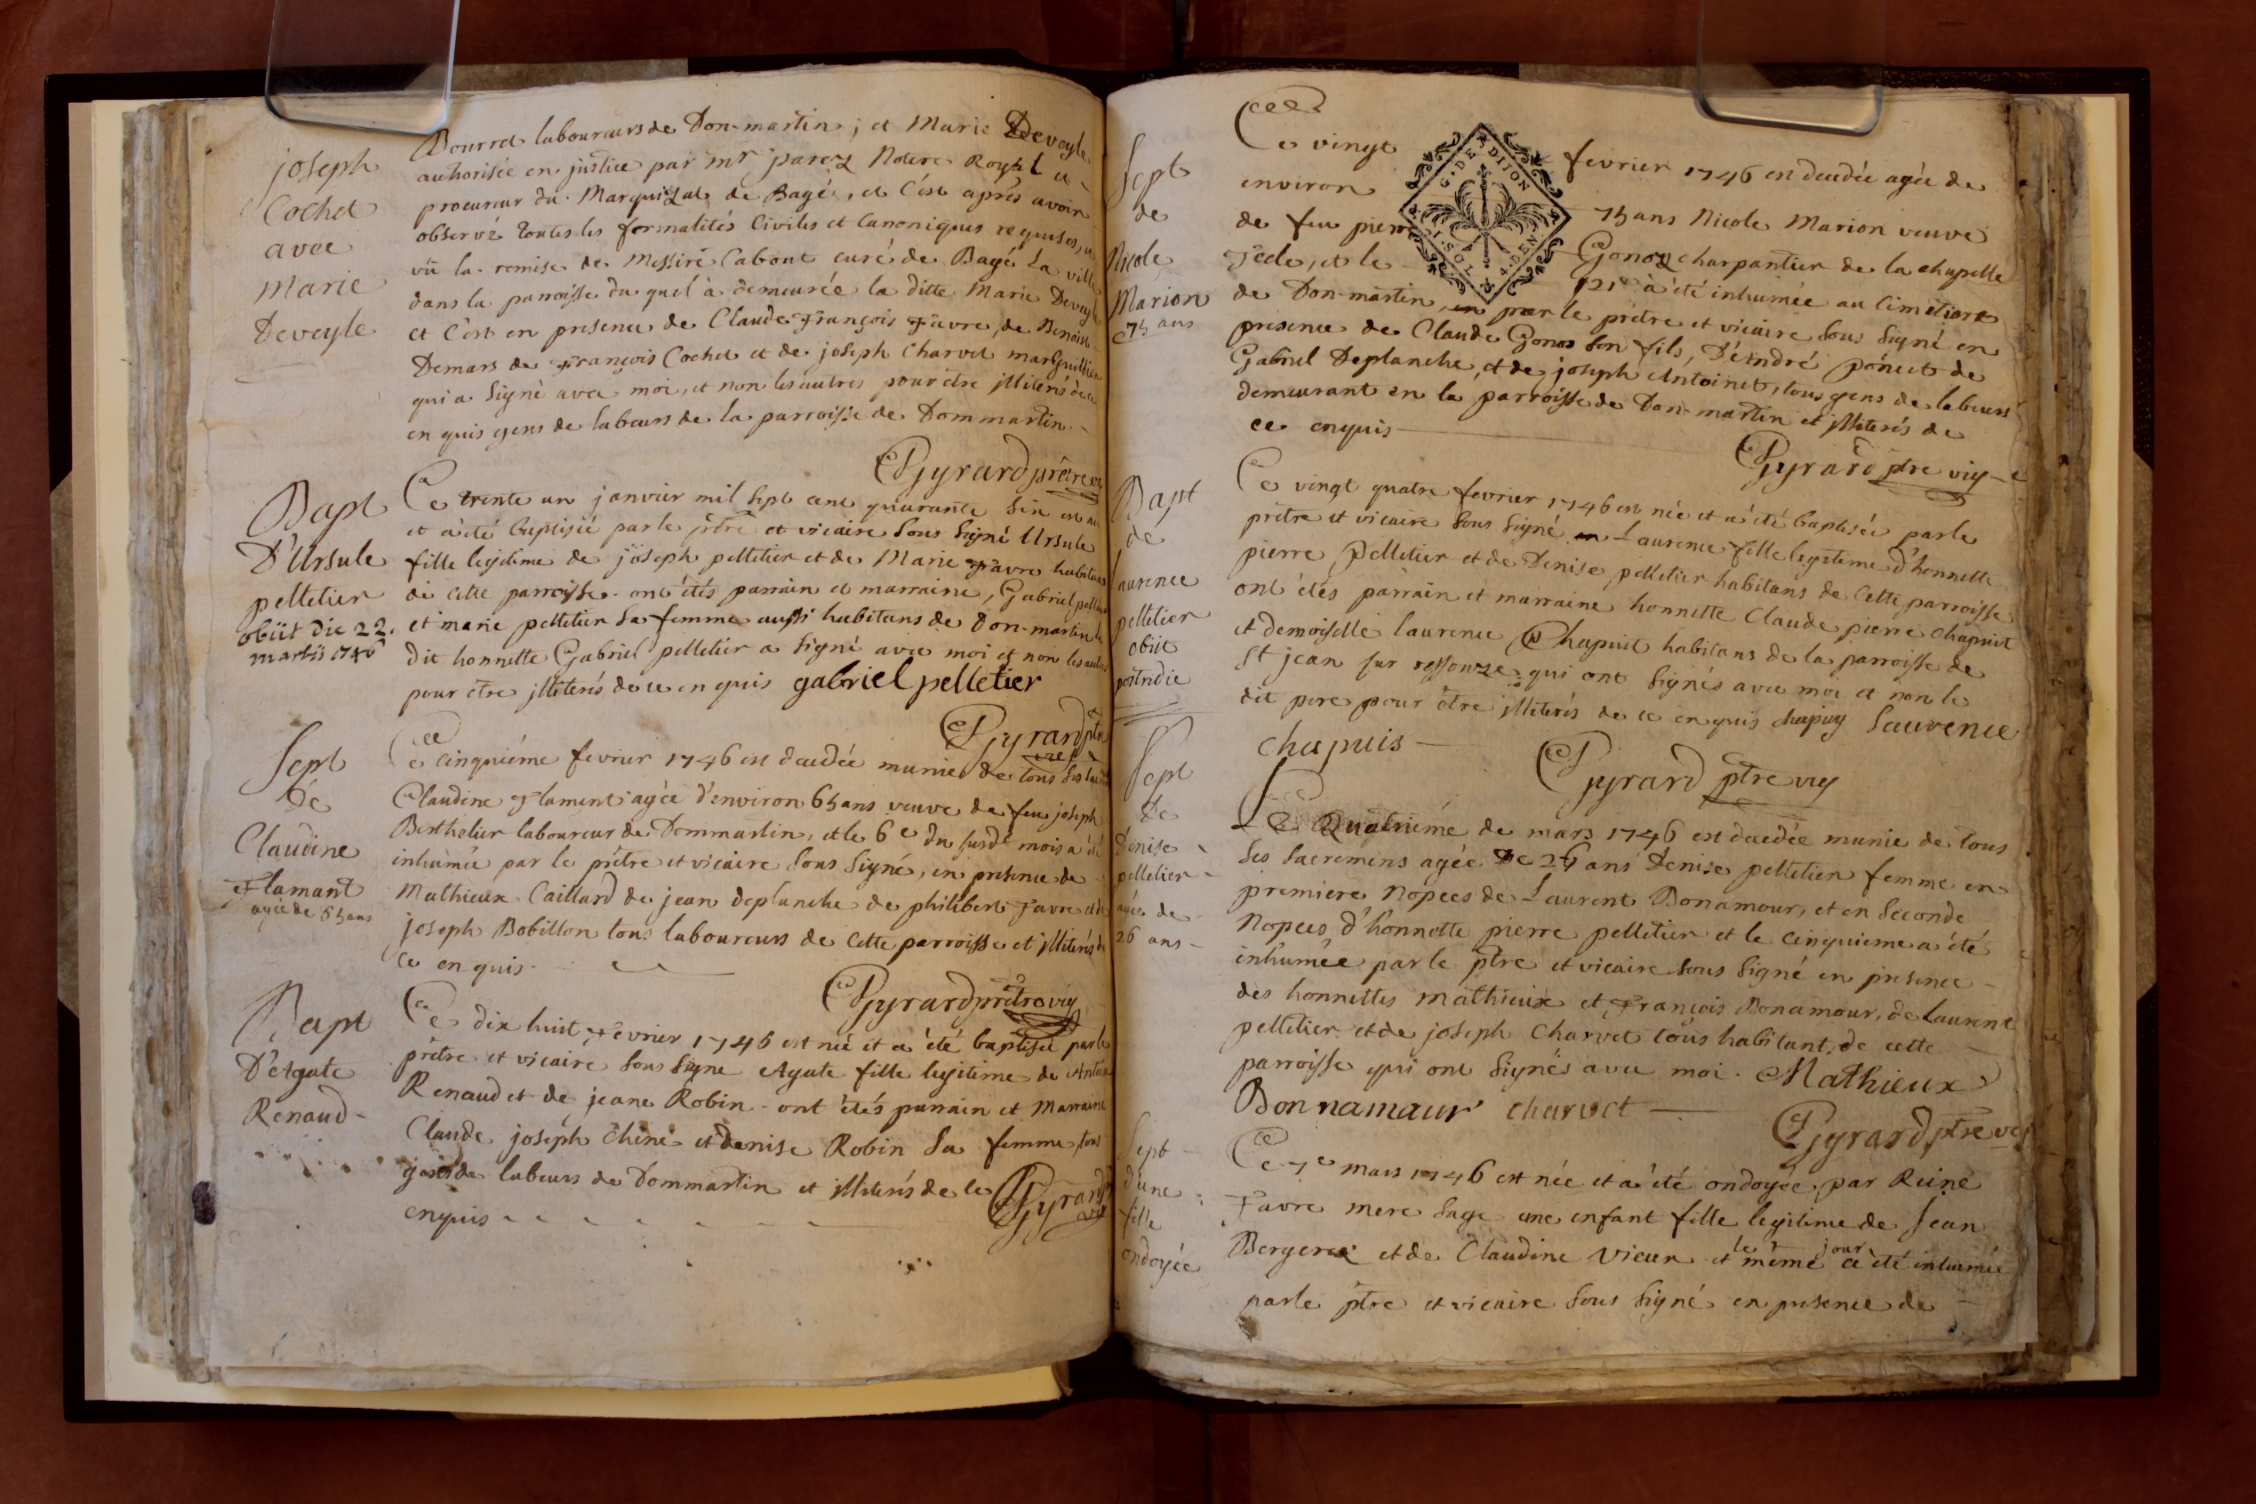 joseph
Cochet
avec
marie
Deveyle
Bourret laboureurs de Don-martin ; et Marie Deveyle
authorisée en justice par mr parez Notere Royal et
procureur du Marquizat de Bagé, et c'est après avoir
observé toutes les formalités Civiles et Canoniques requises,
vü la remise de Messire Cabont curé de Bagé La ville
dans la parroisse du quel à demeurée la ditte Marie Deveyle
et C'est en presence de Claude François Favre, de Benoist
Demars de François Cochet et de joseph Charvet marguillier
qui a Signé avec moi, et non les autres pour être illiterés de ce
en quis gens de labeurs de la parroisse de Dommartin.
Gyrard prêtre
Bapt
D'Ursule
pelletier
obiit die 22.
martis 1746
Ce trente un janvier mil Sept cent quarante Six est
et a été baptisée par le ptre et vicaire Sous Signé Ursule
fille legitime de joseph pelletier et de Marie Favre habitans
de cette parroisse. ont étés parrain et marraine, Gabriel pelletier
et marie pelletier Sa femme aussi habitans de Don-martin le
dit honnette Gabriel pelletier a Signé avec moi et non les autres
pour être illiterés de ce en quis gabriel pelletier
Gyrard ptre
Sept
de
Claudine
Flamant
agée de 65 ans
Ce cinquiéme fevrier 1746 est decedée munie de tous Ses
Claudine Flament agée d'environ 65 ans veuve de feu joseph
Berthelier laboureur de Dommartin, et le 6e du susdt mois a été
inhumée par le prêtre et vicaire Sous Signé, en presence de
Mathieux Caillard de jean deplanche de philibert Favre et de
joseph Bobillon tous laboureurs de Cette parroisse et illiterés de
ce en quis.
Gyrard prêtre vic
Bapt
D'Agate
Renaud
Ce dix huit Fevrier 1746 est née et a été baptisée par le
prêtre et vicaire Sous Signe Agate fille legitime de Antoine
Renaud et de jeane Robin. ont étés parrain et Marraine
Claude joseph Chéne et denise Robin Sa femme, tous
gens de labeurs de Dommartin et illiterés de ce
enquis
Gyrard
Sept
de
Nicole
Marion
75 ans
Ce vingt fevrier 1746 est decedée agée de
environ 75 ans Nicole Marion veuve
de feu pierre Gonoz charpantier de la chapelle
et le 21e à été inhumée au Cimetiere
de Don-martin, par le prêtre et vicaire Sous Signé en
presence de Claude Gonoz Son fils, D'André ponect de
Gabriel Deplanche, et de joseph Antoinet, tous gens de labeurs
demeurant en la parroisse de Don-martin et illiterés de
ce enquis
G. DE DIJON
Gyrard ptre vic
Bapt
de
Laurence
pelletier
obiit
postridie
Ce vingt quatre fevrier 1746 est née et a été baptisée par le
prêtre et vicaire Sous Signé Laurence fille legitime d'honnette
pierre Pelletier et de Denise pelletier habitans de Cette parroisse
ont étés parrain et marraine honnette Claude pierre Chapuit
et demoiselle laurence Chapuit habitans de la parroisse de
St jean sur ressouze qui ont Signés avec moi et non le
dit pere pour être illiterés de ce en quis chapuy Laurence
Chapuis
Gyrard ptre vic
Sept
De
Denise
pelletier
agée de
26 ans
Le Quatriéme de mars 1746 est decedée munie de tous
Ses Sacremens agée De 26 ans Denise pelletier femme en
premiere Nopces de Laurent Bonamour, et en Seconde
Nopces d'honnette pierre pelletier et le cinquieme a été
inhumée par le ptre et vicaire Sous Signé en presence
des honnettes Mathieux et François Bonamour, de Laurent
pelletier et de joseph Charvet tous habitant de cette
parroisse qui ont Signés avec moi. Mathieux
Bonnamaur charvet
Gyrard ptre vic
Sept
d'une
fille
ondoyée
Ce 7e mars 1746 est née et a été ondoyée par Reine
Favre mere Sage une enfant fille legitime de Jean
Bergeret et de Claudine Vieux et le même jour a été inhumée
par le ptre et vicaire Sous Signé en presence de